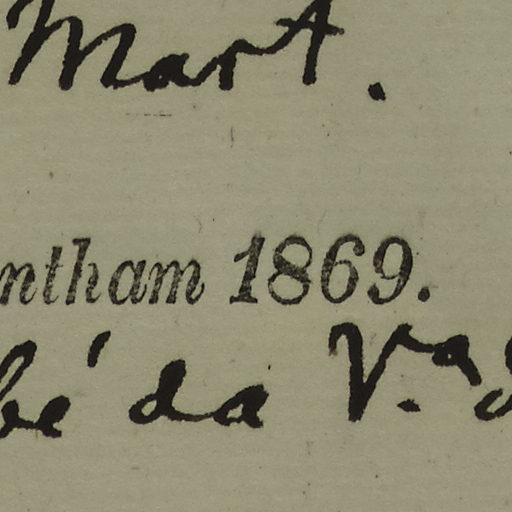 Mart.
ntham 1869.
bé da V.a